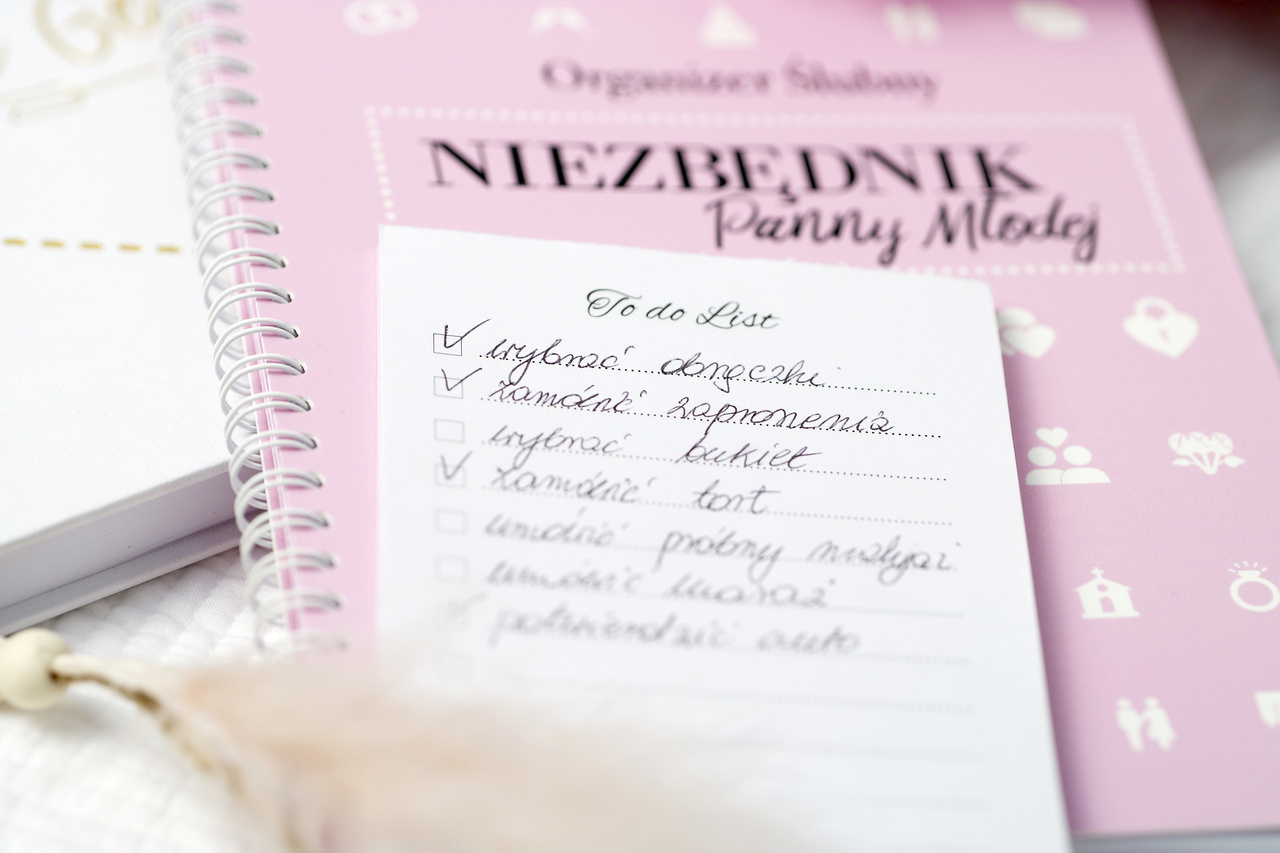 Organizer Ślubny
NIEZBĘDNIK
Panny Młodej
To do List
wybrać obrączki
zamówić zaproszenia
wybrać bukiet
zamówić tort
umówić próbny makijaż
umówić
potwierdzić auto